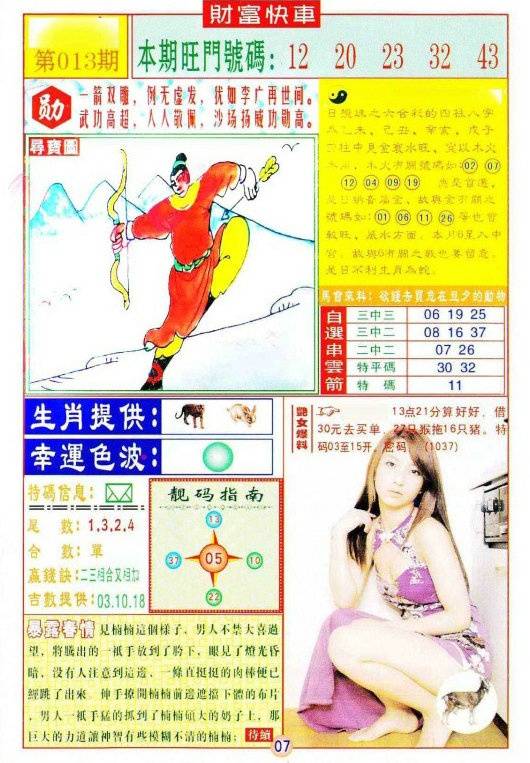 財富快車
第013期
本期旺門號碼: 12 20 23 32 43
勋
一箭双雕，例无虚发，犹如李广再世间。
武功高超，人人敬佩，沙场扬威功勋高。
尋寶圖
日搅珠之六合彩的四柱八字
己未、己丑、辛亥、戊子
四柱中見金衰水旺，宜以木火
木火有關號碼如 02 07
12 04 09 19 應是首選，
故與金有關之
號碼如: 01 06 11 26 等也曾
較旺，風水方面，本月6星入中
宮，故與6有關之數也要留意，
是日不利生肖為蛇。
馬會來料：欲錢去買危在旦夕的動物
自選串雲箭
三中三 06 19 25
三中二 08 16 37
二中二 07 26
特平碼 30 32
特 碼 11
生肖提供:
幸運色波:
特碼信息:
尾 數: 1,3,2,4
合 數: 單
贏錢訣: 二三相合又相加
吉數提供: 03.10.18
靓码指南
13
37 05 10
22
艷女爆料
13点21分算好好，借
30元去买单，27只猴拖16只猪。特
码03至15开，密码 (1037)
暴露春情 見楠楠這個樣子，男人不禁大喜過
望，將騰出的一衹手放到了胯下，眼見了燈光昏
暗，没有人注意到這邊，一條直挺挺的肉棒便已
經跳了出來，伸手撩開楠楠前邊遮擋下體的布片
，男人一衹手猛的抓到了楠楠碩大的奶子上，那
巨大的力道讓神智有些模糊不清的楠楠: 待續
07